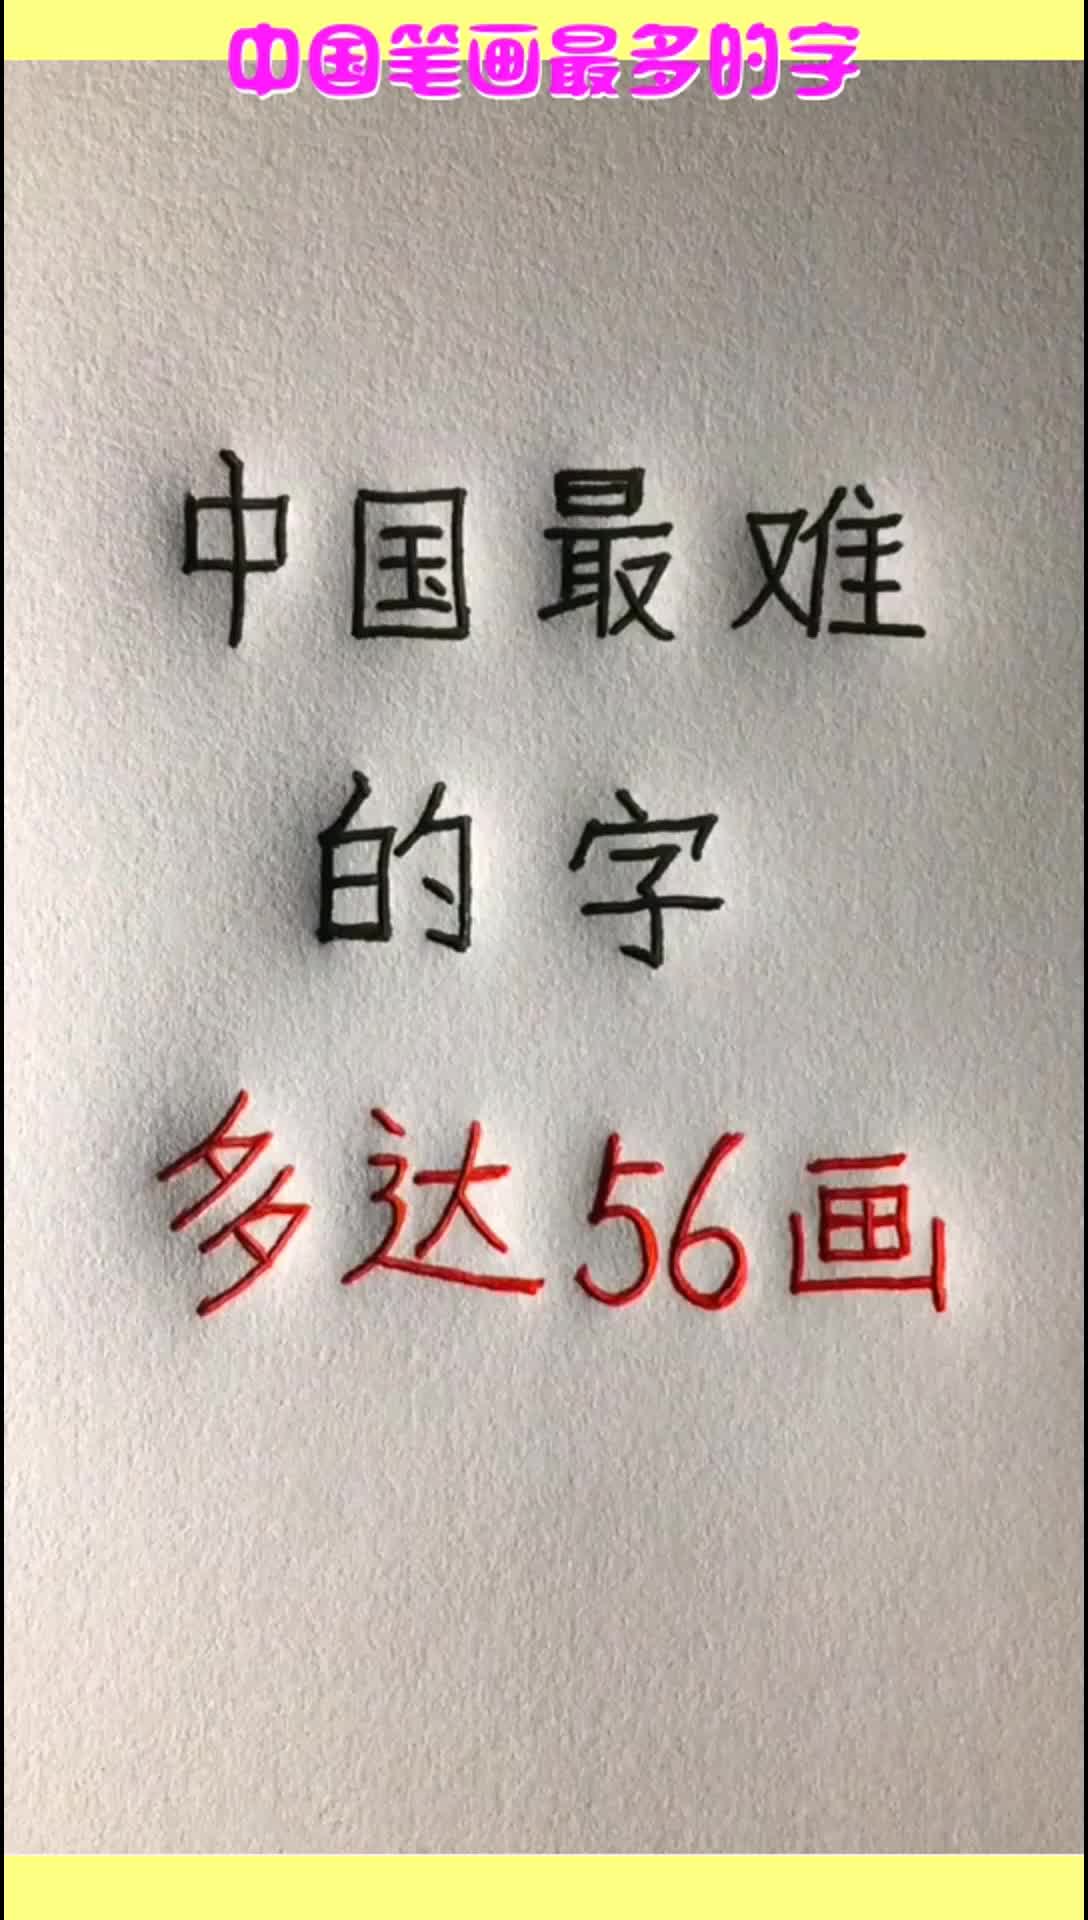 中国笔画最多的字
中国最难
的字
多达56画